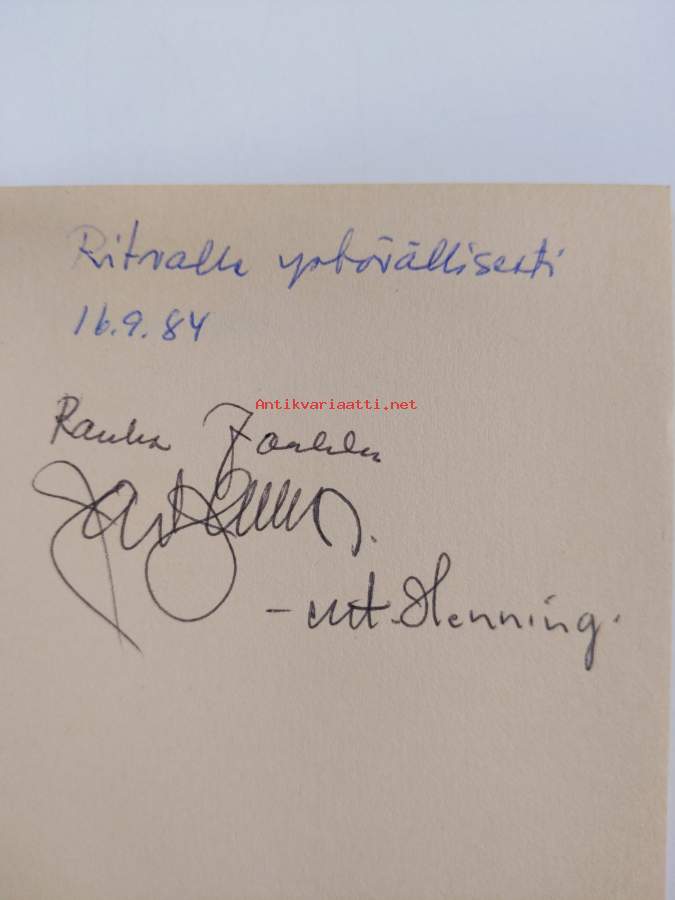 Ritvalle ystävällisesti
16.9.84
Antikvariaatti.net
Jaakko
- mt. Henning.